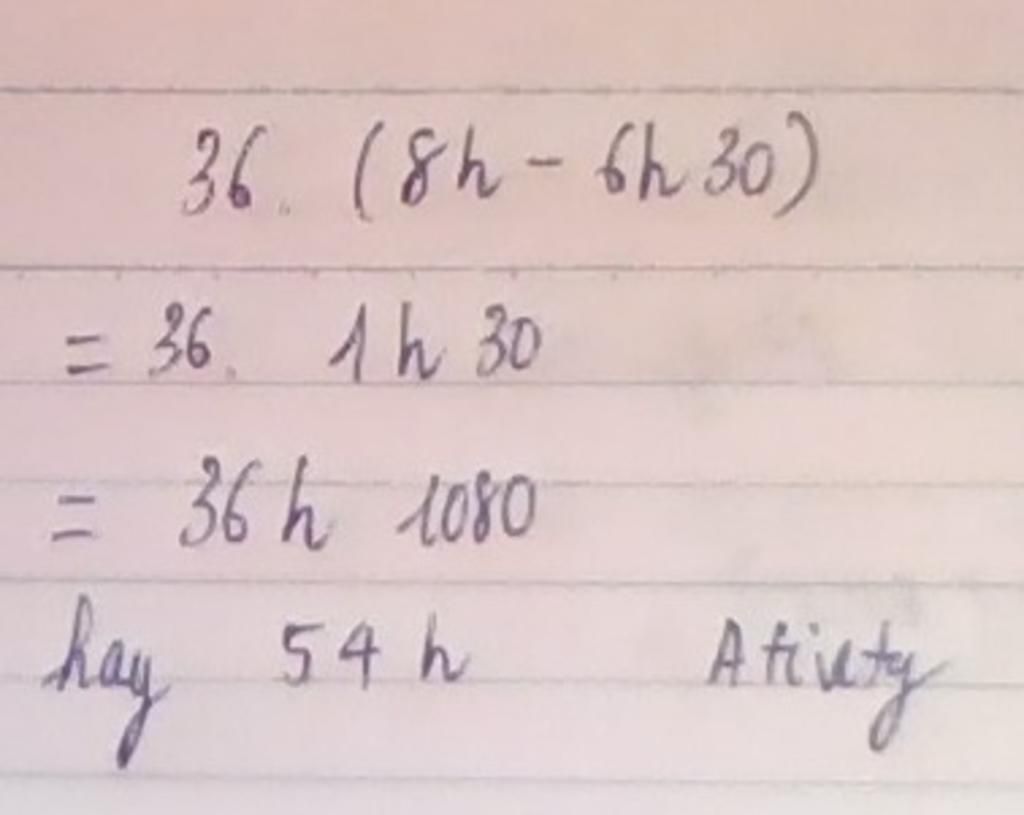 36. (8h - 6h 30)
= 36. 1h 30
= 36h 1080
hay 54h